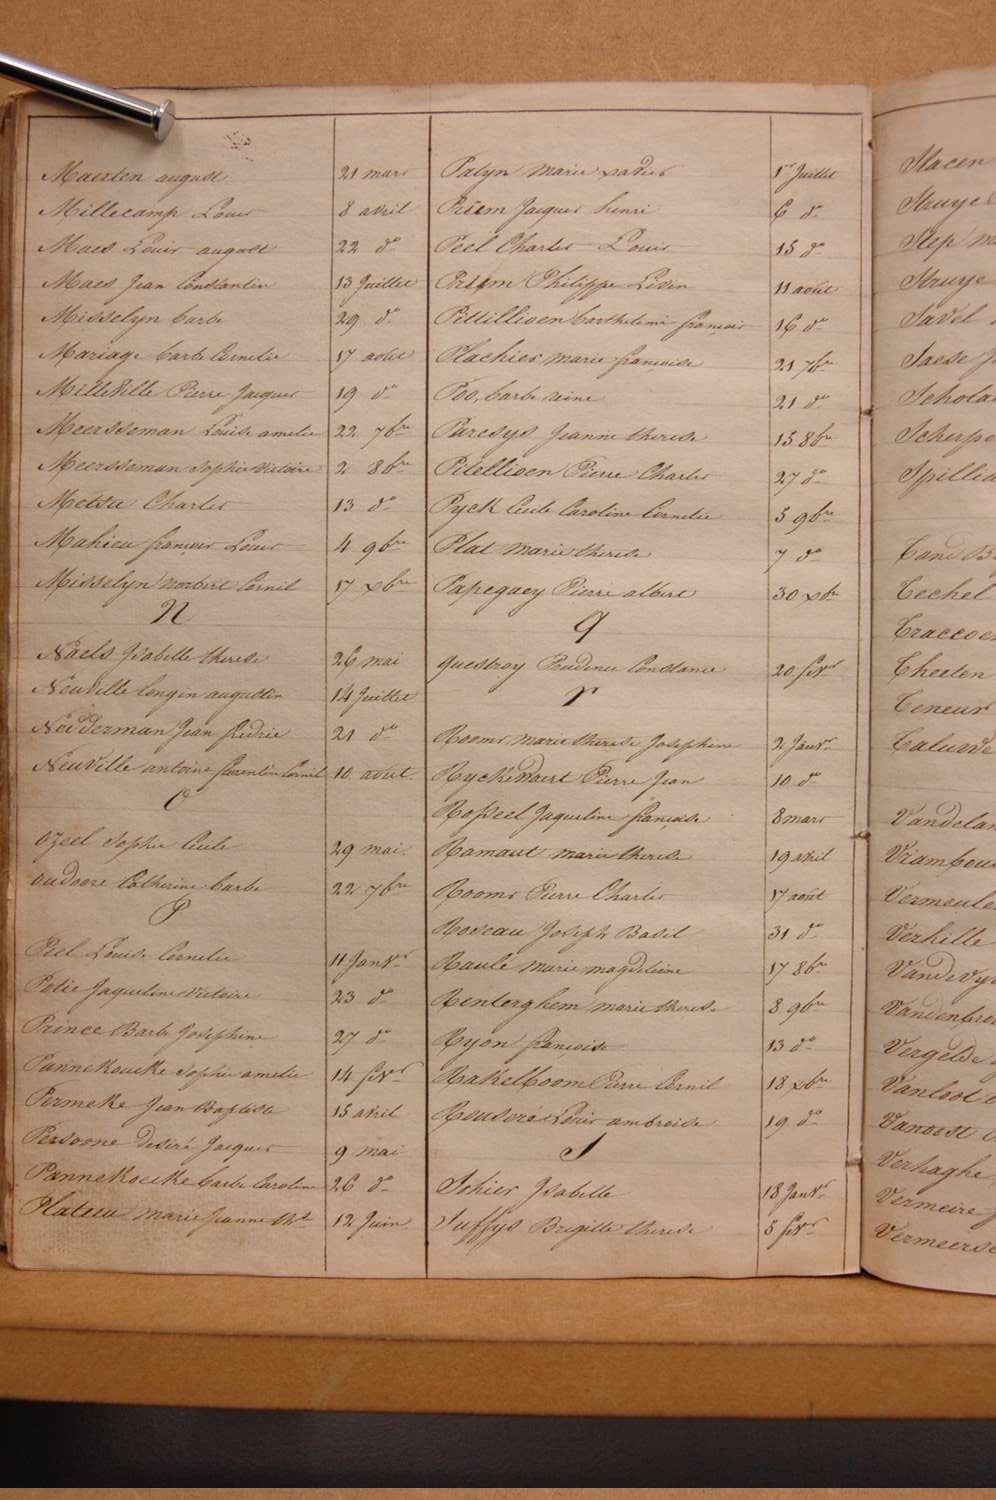 Maerten august 21 mars
Millecamp Louis 8 avril
Maes Louis august 22 do
Maes Jean Constantin 13 Juillet
Misselyn barbe 29 do
Mariage barbe Cornelie 17 août
Milleville Pierre Jacques 19 do
Meersseman Louise amelie 22 7bre
Meersseman Sophie Victoire 2 8bre
Metsu Charles 13 do
Mahieu françois Louis 4 9bre
Misselyn norbert Cornil 17 xbre
N
Naels Isabelle therese 26 mai
Neuville longin augustin 14 Juillet
Nodderman Jean fredric 21 do
Neuville antoine florentin Cornil 10 août
O
Ozeel Sophie Cecile 29 mai
oudoore Catherine barbe 22 7bre
P
Peel Louise Cornelie 11 Janvr
Petie Jaqueline Victoire 23 do
Prince Barbe Josephine 27 do
Pannekoucke Sophie amelie 14 fevr
Permeke Jean Baptiste 15 avril
Persoone desiré Jacques 9 mai
Pannekoecke barbe Caroline 26 do
Plateeu marie Jeanne the 12 Juin
Patyn marie xavier 1r Juillet
Priem Jacques henri 6 do
Peel Charles Louis 15 do
Priem Philippe Livin 11 août
Pittillioen barthelemi françois 16 do
Plachier marie françoise 21 7bre
Poo, barbe reine 21 do
Paresys Jeanne therese 15 8bre
Pitellioen Pierre Charles 27 do
Pyck Cecile Caroline Cornelie 5 9bre
Plat marie therese 7 do
Papeguey Pierre albert 30 xbre
q
questroy Prudence Constance 20 fevr
r
Rooms marie therese Josephine 2 Janvr
Ryckewaert Pierre Jean 10 do
Rosseel Jaqueline françoise 8 mars
Ramaut marie therese 19 avril
Rooms Pierre Charles 17 août
Roseau Joseph Basil 31 do
Raulé marie magdeleine 17 8bre
Renterghem marie therese 8 9bre
Ryon françoise 13 do
Rakelboom Pierre Cornil 18 xbre
Rousere Louis ambroise 19 do
S
Sohier Isabelle 18 Janvr
Suffys Brigitte therese 5 fevr
Stacen
Struye
Step
Struye
Savel
Saese
Schola
Scherpe
Spillia
Tand
Techel
Traccoe
Theeten
Teneur
Talurde
Vandela
Vrambou
Vermeule
Verhille
Vandevy
Vandenbro
Vergeld
Vanloot
Vanoost
Verhaghe
Vermeire
Vermeerse